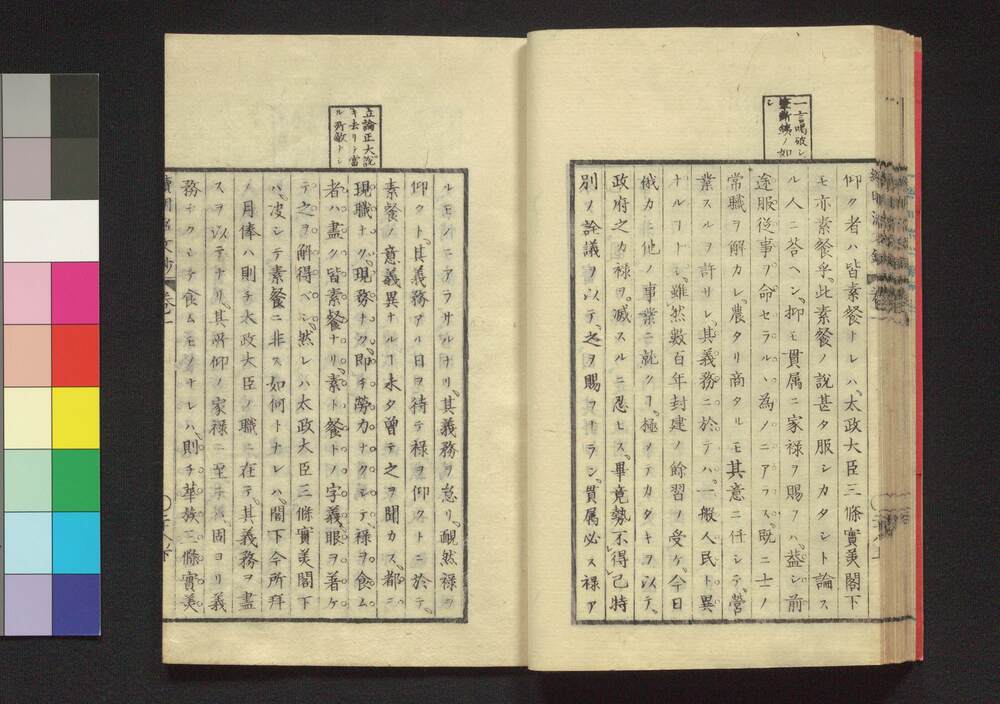 一言喝破シ
シ
仰ク者ハ皆素餐トレハ太政大臣三條實美閣下
モ亦素餐乎此素餐ノ說甚タ服シカタシト論ス
ル人ニ荅ヘン抑モ貫属ニ家禄ヲ賜フハ益シ前
途服從事ヲ命セラルヽ為ノニアラス既ニ士ノ
常職ヲ解カレ農タリ商タルモ其意ニ任シテ營
業スルヲ許サレ其義務ニ於テハ一般人民ト異
ナルヿナシ雖然數百年封建ノ餘習ノ受ケ今日
俄カニ他ノ事業ニ就クヿ極メテカタキヲ以テ
政府之カ禄ヲ滅スルニ忍ヒス畢竟勢不得已特
別ノ詮議ヲ以テ之ヲ賜ヲーラン貫属必ス禄ア
立論正大說
キ去リテ當
ル所敵ナシ
ルモノニアラサルナリ其義務ヲ怠リ靦然禄ヲ
仰クト其義務アル日ヲ待テ禄ヲ仰クトニ於テ
素餐ノ意義異ナルー未タ曽テ之ヲ聞カス都ニ
現職ナク現務ナク即チ勞力ナクシテ禄ヲ食ム
者ハ盡ク皆素餐ナリ素ト餐トノ字義眼ヲ著ケ
テ之ヲ解得ベシ然レハ太政大臣三條實美閣下
ハ決シテ素餐ニ非ス如何トナレハ閣下今所拜
ノ月俸ハ則チ太政大臣ノ職ニ在テ其義務ヲ盡
スヲ以テナリ其所仰ノ家禄ニ至テハ固ヨリ義
務ナクシテ食ムモノナレハ則チ華族三條實美